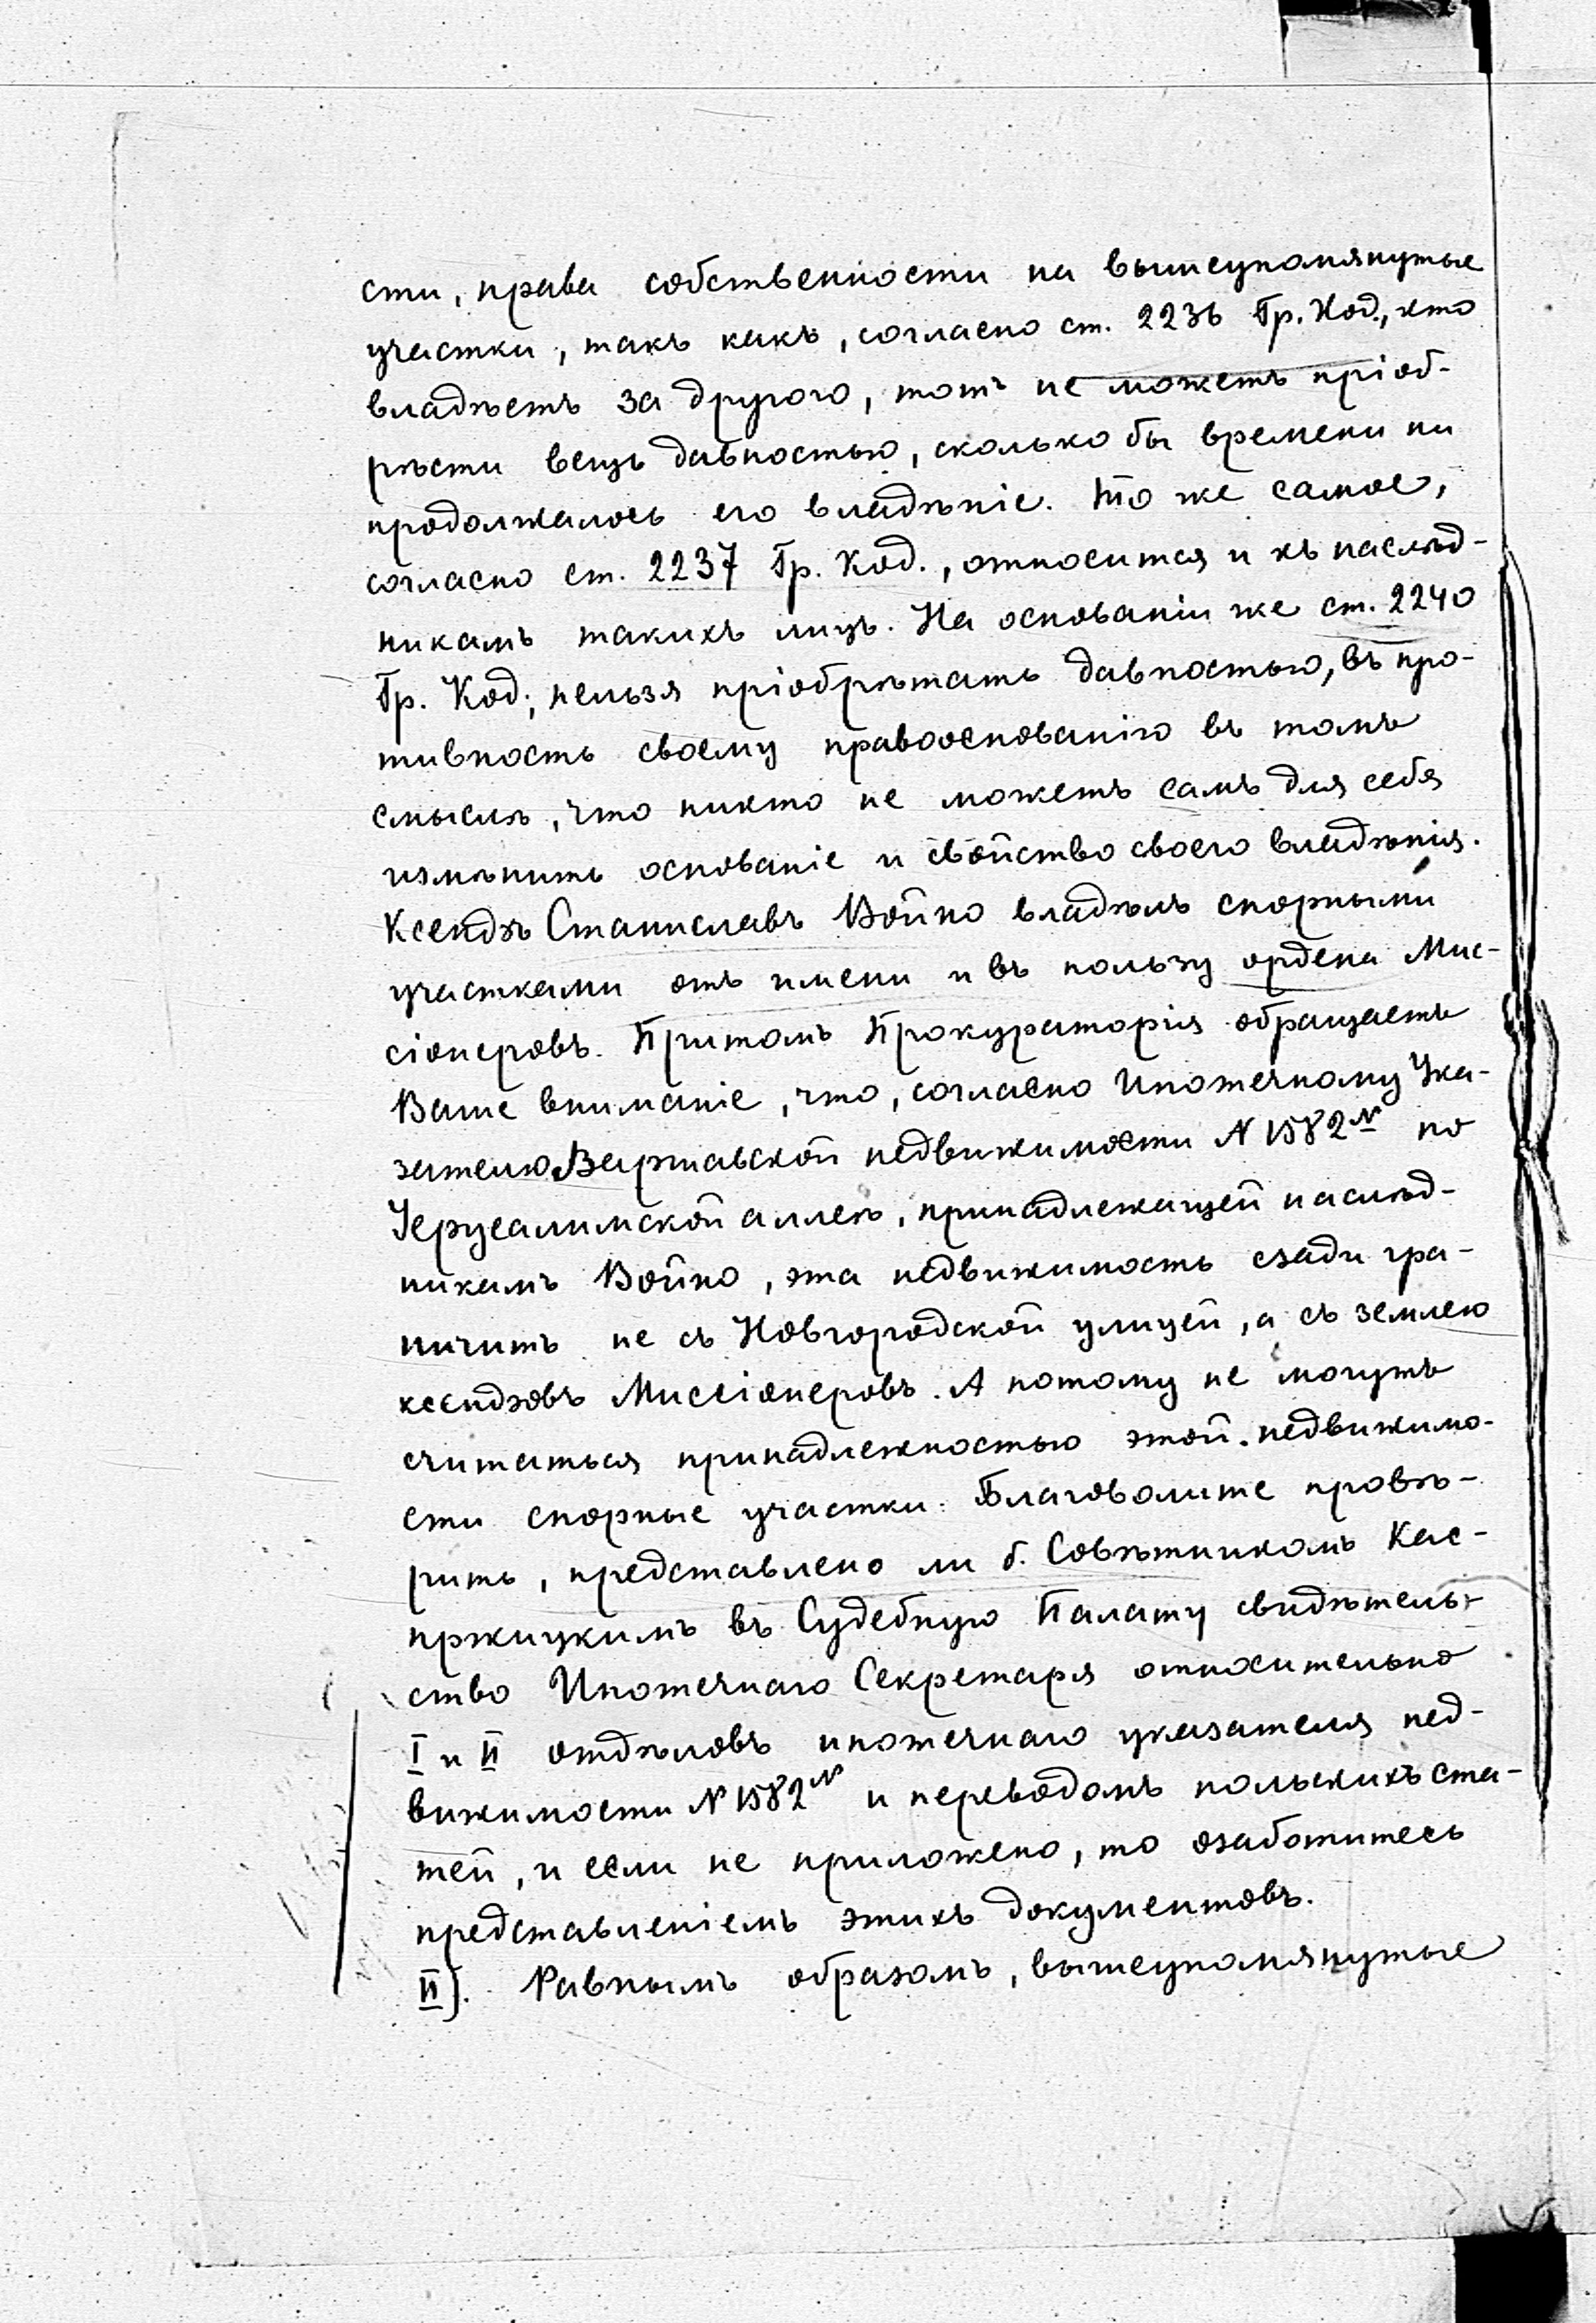 сти, права собственности на вышеупомянутые
участки, такъ какъ, согласно ст. 2236 Гр. Код., кто
владѣетъ за другого, тотъ не можетъ пріоб-
рѣсти вещь давностью, сколько бы времени ни
продолжалось его владѣніе. То же самое,
согласно ст. 2237 Гр. Код., относится и къ наслѣд-
никамъ такихъ лицъ. На основаніи же ст. 2240
Гр. Код., нельзя пріобрѣтать давностью, въ про-
тивность своему правооснованію въ томъ
смыслѣ, что никто не можетъ самъ для себя
измѣнить основаніе и свойство своего владѣнія.
Ксендзъ Станиславъ Война владѣлъ спорными
участками отъ имени и въ пользу ордена Мис-
сіонеровъ. Притомъ Прокураторія обращаетъ
Ваше вниманіе, что, согласно Ипотечному Ука-
зателю Варшавской недвижимости N 1582 N по
Іерусалимской аллеѣ, принадлежащей наслѣд-
никамъ Война, эта недвижимость сзади гра-
ничитъ не съ Новгородской улицей, а съ землею
ксендзовъ Миссіонеровъ. А потому не могутъ
считаться принадлежностью этой недвижимо-
сти спорные участки. Благоволите провѣ-
рить, представлено ли б. Совѣтникомъ Кас-
пржицкимъ въ Судебную Палату свидѣтель-
ство Ипотечнаго Секретаря относительно
I и II отдѣловъ ипотечнаго указателя нед-
вижимости N 1582 N и переводомъ польскихъ ста-
тей, и если не приложено, то озаботитесь
представленіемъ этихъ документовъ.
II). Равнымъ образомъ, вышеупомянутые